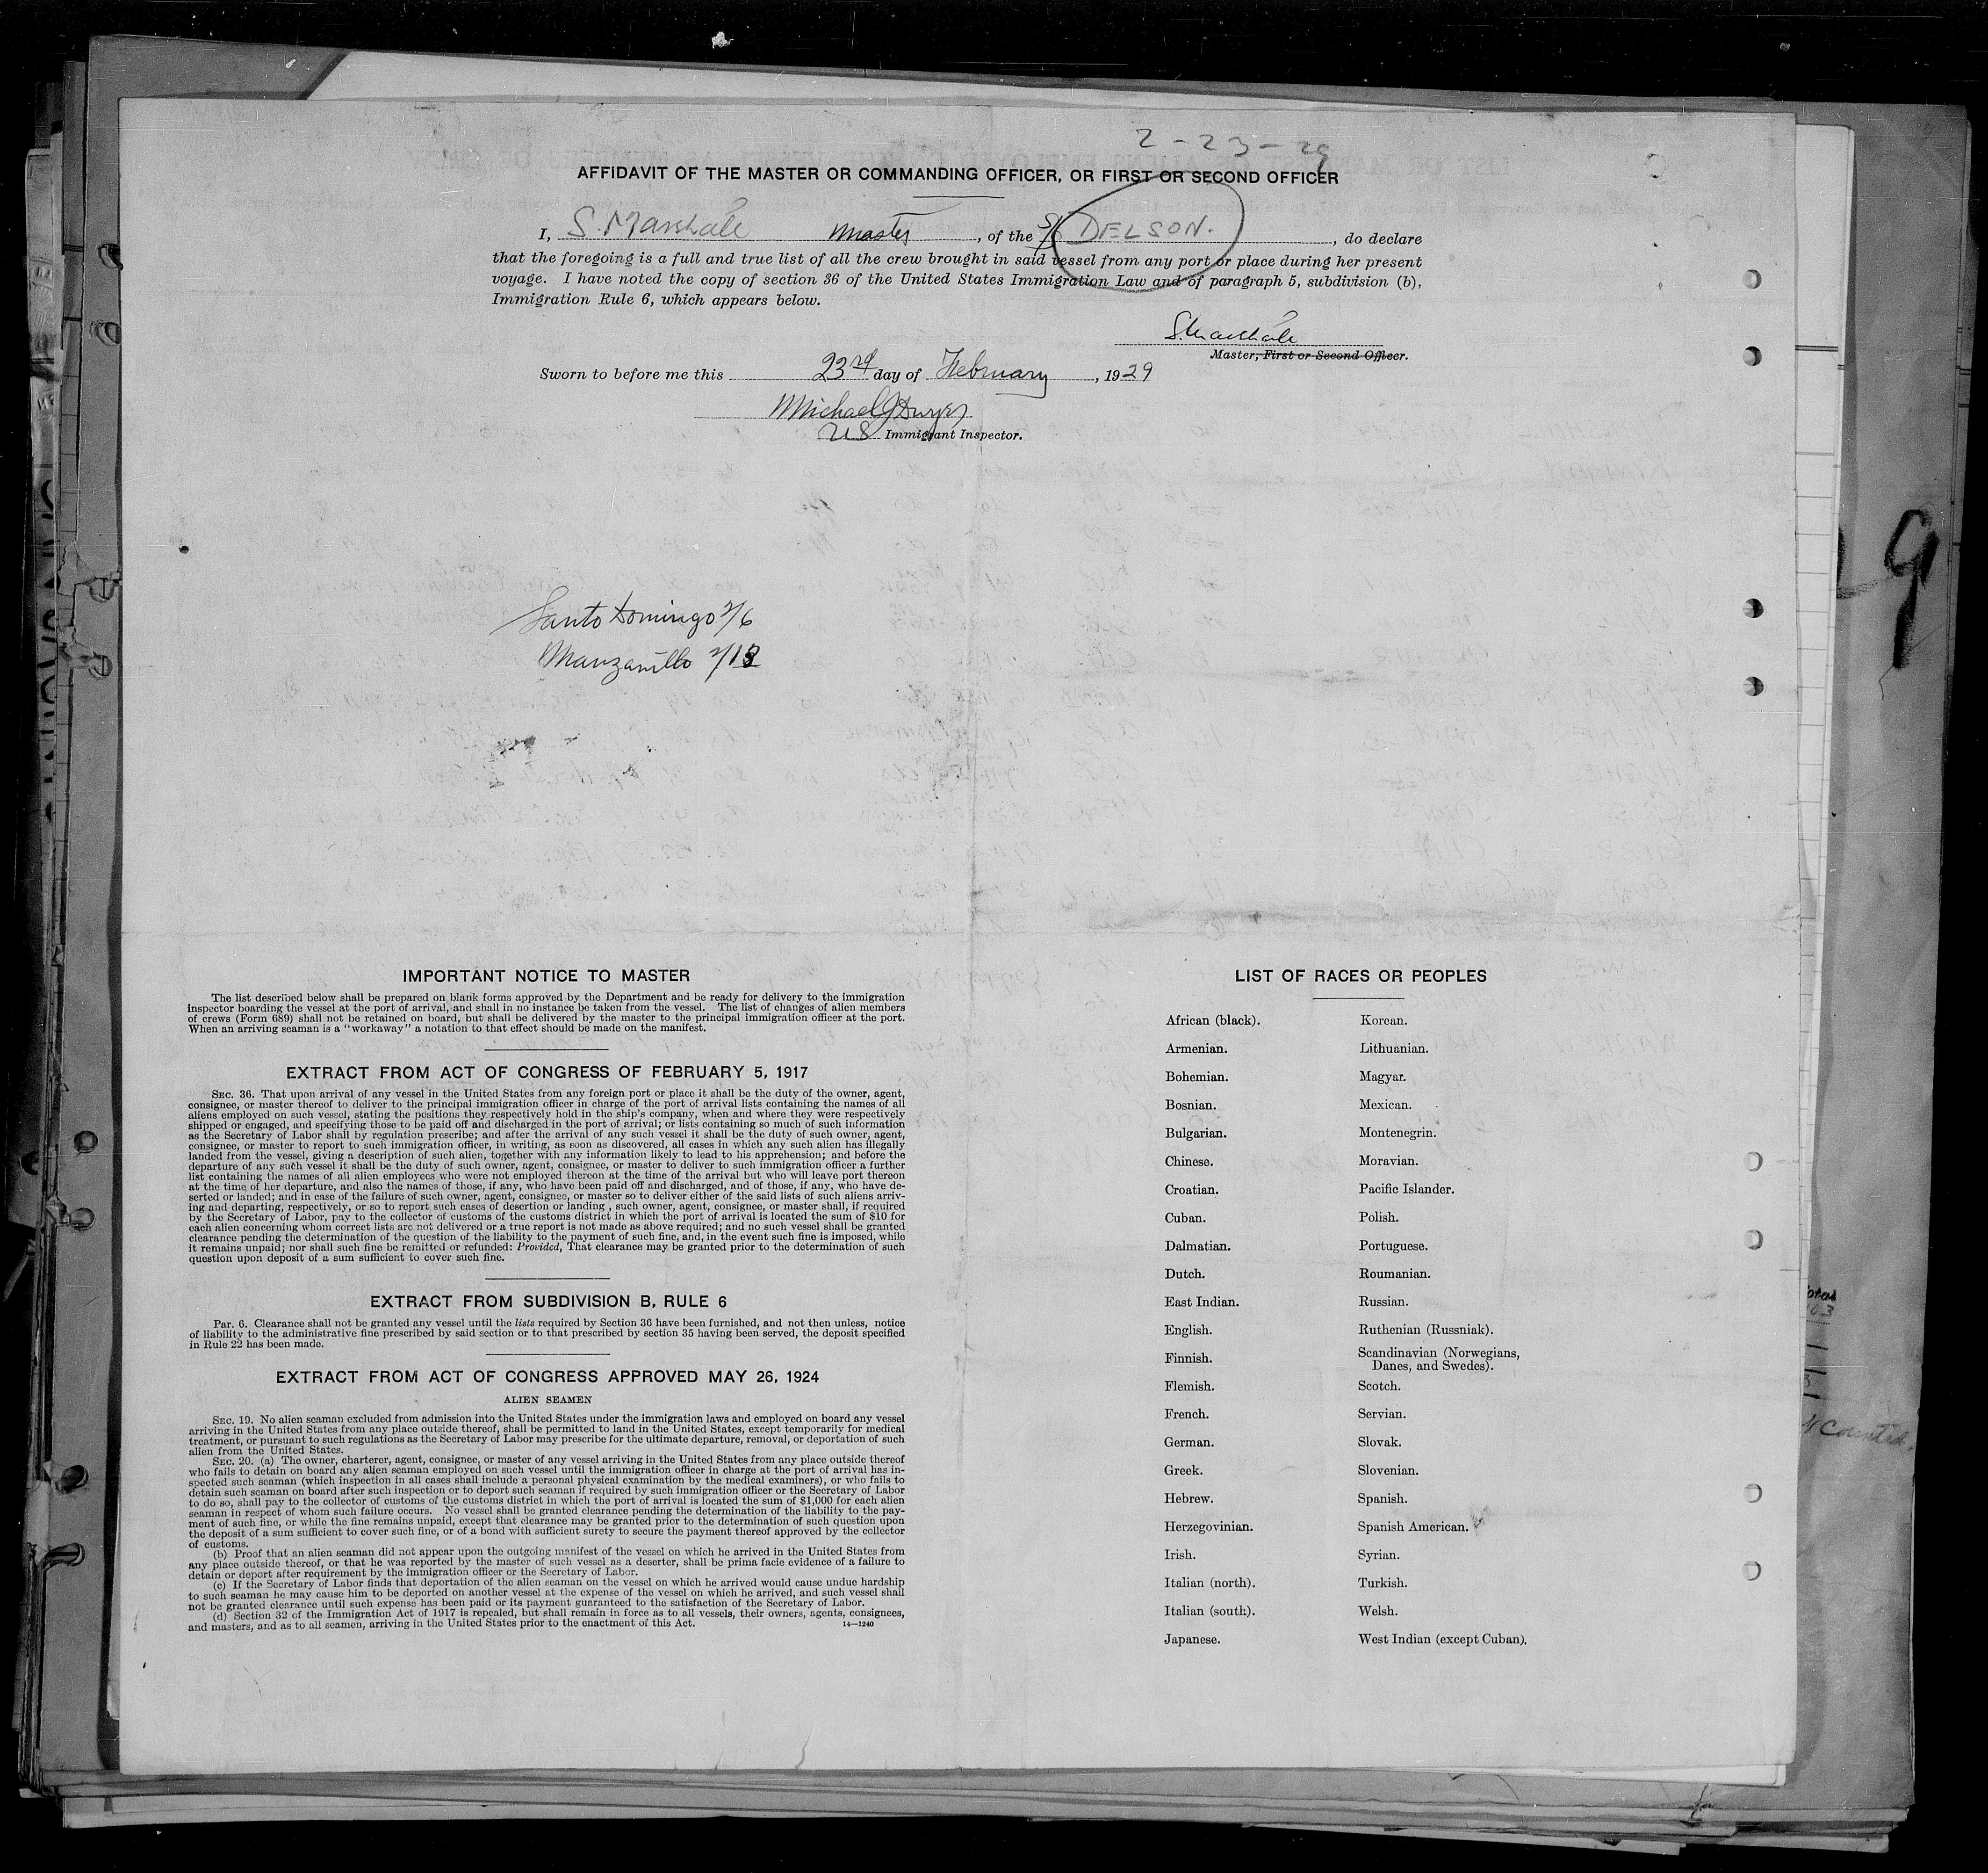 2-23-29
AFFIDAVIT OF THE MASTER OR COMMANDING OFFICER, OR FIRST OR SECOND OFFICER
I, S. Marshall Master, of the S/S DELSON., do declare
that the foregoing is a full and true list of all the crew brought in said vessel from any port or place during her present
voyage. I have noted the copy of section 36 of the United States Immigration Law and of paragraph 5, subdivision (b),
Immigration Rule 6, which appears below.
S. Marshall
Master, First or Second Officer.
Sworn to before me this 23rd day of February, 1929
Michael J Dwyer
US Immigrant Inspector.
Santo Domingo 2/6
Manzanillo 2/13
IMPORTANT NOTICE TO MASTER
The list described below shall be prepared on blank forms approved by the Department and be ready for delivery to the immigration
inspector boarding the vessel at the port of arrival, and shall in no instance be taken from the vessel. The list of changes of alien members
of crews (Form 689) shall not be retained on board, but shall be delivered by the master to the principal immigration officer at the port.
When an arriving seaman is a "workaway" a notation to that effect should be made on the manifest.
EXTRACT FROM ACT OF CONGRESS OF FEBRUARY 5, 1917
SEC. 36. That upon arrival of any vessel in the United States from any foreign port or place it shall be the duty of the owner, agent,
consignee, or master thereof to deliver to the principal immigration officer in charge of the port of arrival lists containing the names of all
aliens employed on such vessel, stating the positions they respectively hold in the ship's company, when and where they were respectively
shipped or engaged, and specifying those to be paid off and discharged in the port of arrival; or lists containing so much of such information
as the Secretary of Labor shall by regulation prescribe; and after the arrival of any such vessel it shall be the duty of such owner, agent,
consignee, or master to report to such immigration officer, in writing, as soon as discovered, all cases in which any such alien has illegally
landed from the vessel, giving a description of such alien, together with any information likely to lead to his apprehension; and before the
departure of any such vessel it shall be the duty of such owner, agent, consignee, or master to deliver to such immigration officer a further
list containing the names of all alien employees who were not employed thereon at the time of the arrival but who will leave port thereon
at the time of her departure, and also the names of those, if any, who have been paid off and discharged, and of those, if any, who have de-
serted or landed; and in case of the failure of such owner, agent, consignee, or master so to deliver either of the said lists of such aliens arriv-
ing and departing, respectively, or so to report such cases of desertion or landing , such owner, agent, consignee, or master shall, if required
by the Secretary of Labor, pay to the collector of customs of the customs district in which the port of arrival is located the sum of $10 for
each alien concerning whom correct lists are not delivered or a true report is not made as above required; and no such vessel shall be granted
clearance pending the determination of the question of the liability to the payment of such fine, and, in the event such fine is imposed, while
it remains unpaid; nor shall such fine be remitted or refunded: Provided, That clearance may be granted prior to the determination of such
question upon deposit of a sum sufficient to cover such fine.
EXTRACT FROM SUBDIVISION B, RULE 6
Par. 6. Clearance shall not be granted any vessel until the lists required by Section 36 have been furnished, and not then unless, notice
of liability to the administrative fine prescribed by said section or to that prescribed by section 35 having been served, the deposit specified
in Rule 22 has been made.
EXTRACT FROM ACT OF CONGRESS APPROVED MAY 26, 1924
ALIEN SEAMEN
SEC. 19. No alien seaman excluded from admission into the United States under the immigration laws and employed on board any vessel
arriving in the United States from any place outside thereof, shall be permitted to land in the United States, except temporarily for medical
treatment, or pursuant to such regulations as the Secretary of Labor may prescribe for the ultimate departure, removal, or deportation of such
alien from the United States.
SEC. 20. (a) The owner, charterer, agent, consignee, or master of any vessel arriving in the United States from any place outside thereof
who fails to detain on board any alien seaman employed on such vessel until the immigration officer in charge at the port of arrival has in-
spected such seaman (which inspection in all cases shall include a personal physical examination by the medical examiners), or who fails to
detain such seaman on board after such inspection or to deport such seaman if required by such immigration officer or the Secretary of Labor
to do so, shall pay to the collector of customs of the customs district in which the port of arrival is located the sum of $1,000 for each alien
seaman in respect of whom such failure occurs. No vessel shall be granted clearance pending the determination of the liability to the pay-
ment of such fine, or while the fine remains unpaid, except that clearance may be granted prior to the determination of such question upon
the deposit of a sum sufficient to cover such fine, or of a bond with sufficient surety to secure the payment thereof approved by the collector
of customs.
(b) Proof that an alien seaman did not appear upon the outgoing manifest of the vessel on which he arrived in the United States from
any place outside thereof, or that he was reported by the master of such vessel as a deserter, shall be prima facie evidence of a failure to
detain or deport after requirement by the immigration officer or the Secretary of Labor.
(c) If the Secretary of Labor finds that deportation of the alien seaman on the vessel on which he arrived would cause undue hardship
to such seaman he may cause him to be deported on another vessel at the expense of the vessel on which he arrived, and such vessel shall
not be granted clearance until such expense has been paid or its payment guaranteed to the satisfaction of the Secretary of Labor.
(d) Section 32 of the Immigration Act of 1917 is repealed, but shall remain in force as to all vessels, their owners, agents, consignees,
and masters, and as to all seamen, arriving in the United States prior to the enactment of this Act.
14—1240
LIST OF RACES OR PEOPLES
African (black).
Armenian.
Bohemian.
Bosnian.
Bulgarian.
Chinese.
Croatian.
Cuban.
Dalmatian.
Dutch.
East Indian.
English.
Finnish.
Flemish.
French.
German.
Greek.
Hebrew.
Herzegovinian.
Irish.
Italian (north).
Italian (south).
Japanese.
Korean.
Lithuanian.
Magyar.
Mexican.
Montenegrin.
Moravian.
Pacific Islander.
Polish.
Portuguese.
Roumanian.
Russian.
Ruthenian (Russniak).
Scandinavian (Norwegians,
Danes, and Swedes).
Scotch.
Servian.
Slovak.
Slovenian.
Spanish.
Spanish American.
Syrian.
Turkish.
Welsh.
West Indian (except Cuban).